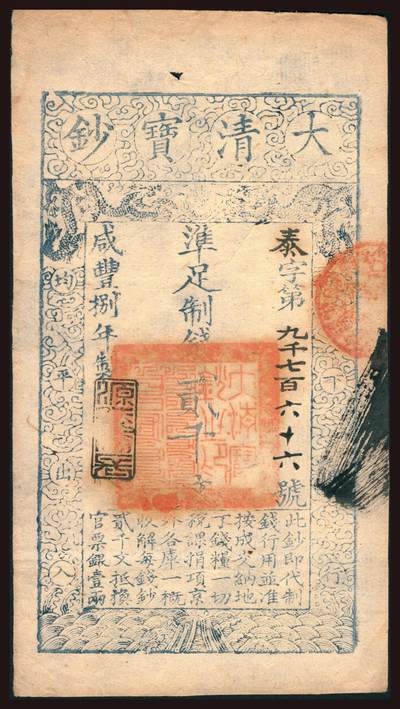 大清寶鈔
泰字第九千七百六十六號
準足制錢貳千
咸豐捌年製
天下
均平出入
行
此鈔即代制
錢行用並准
按成交納地
丁錢糧一切
稅課捐項京
外各庫一概
收解每錢鈔
貳千文抵換
官票銀壹兩